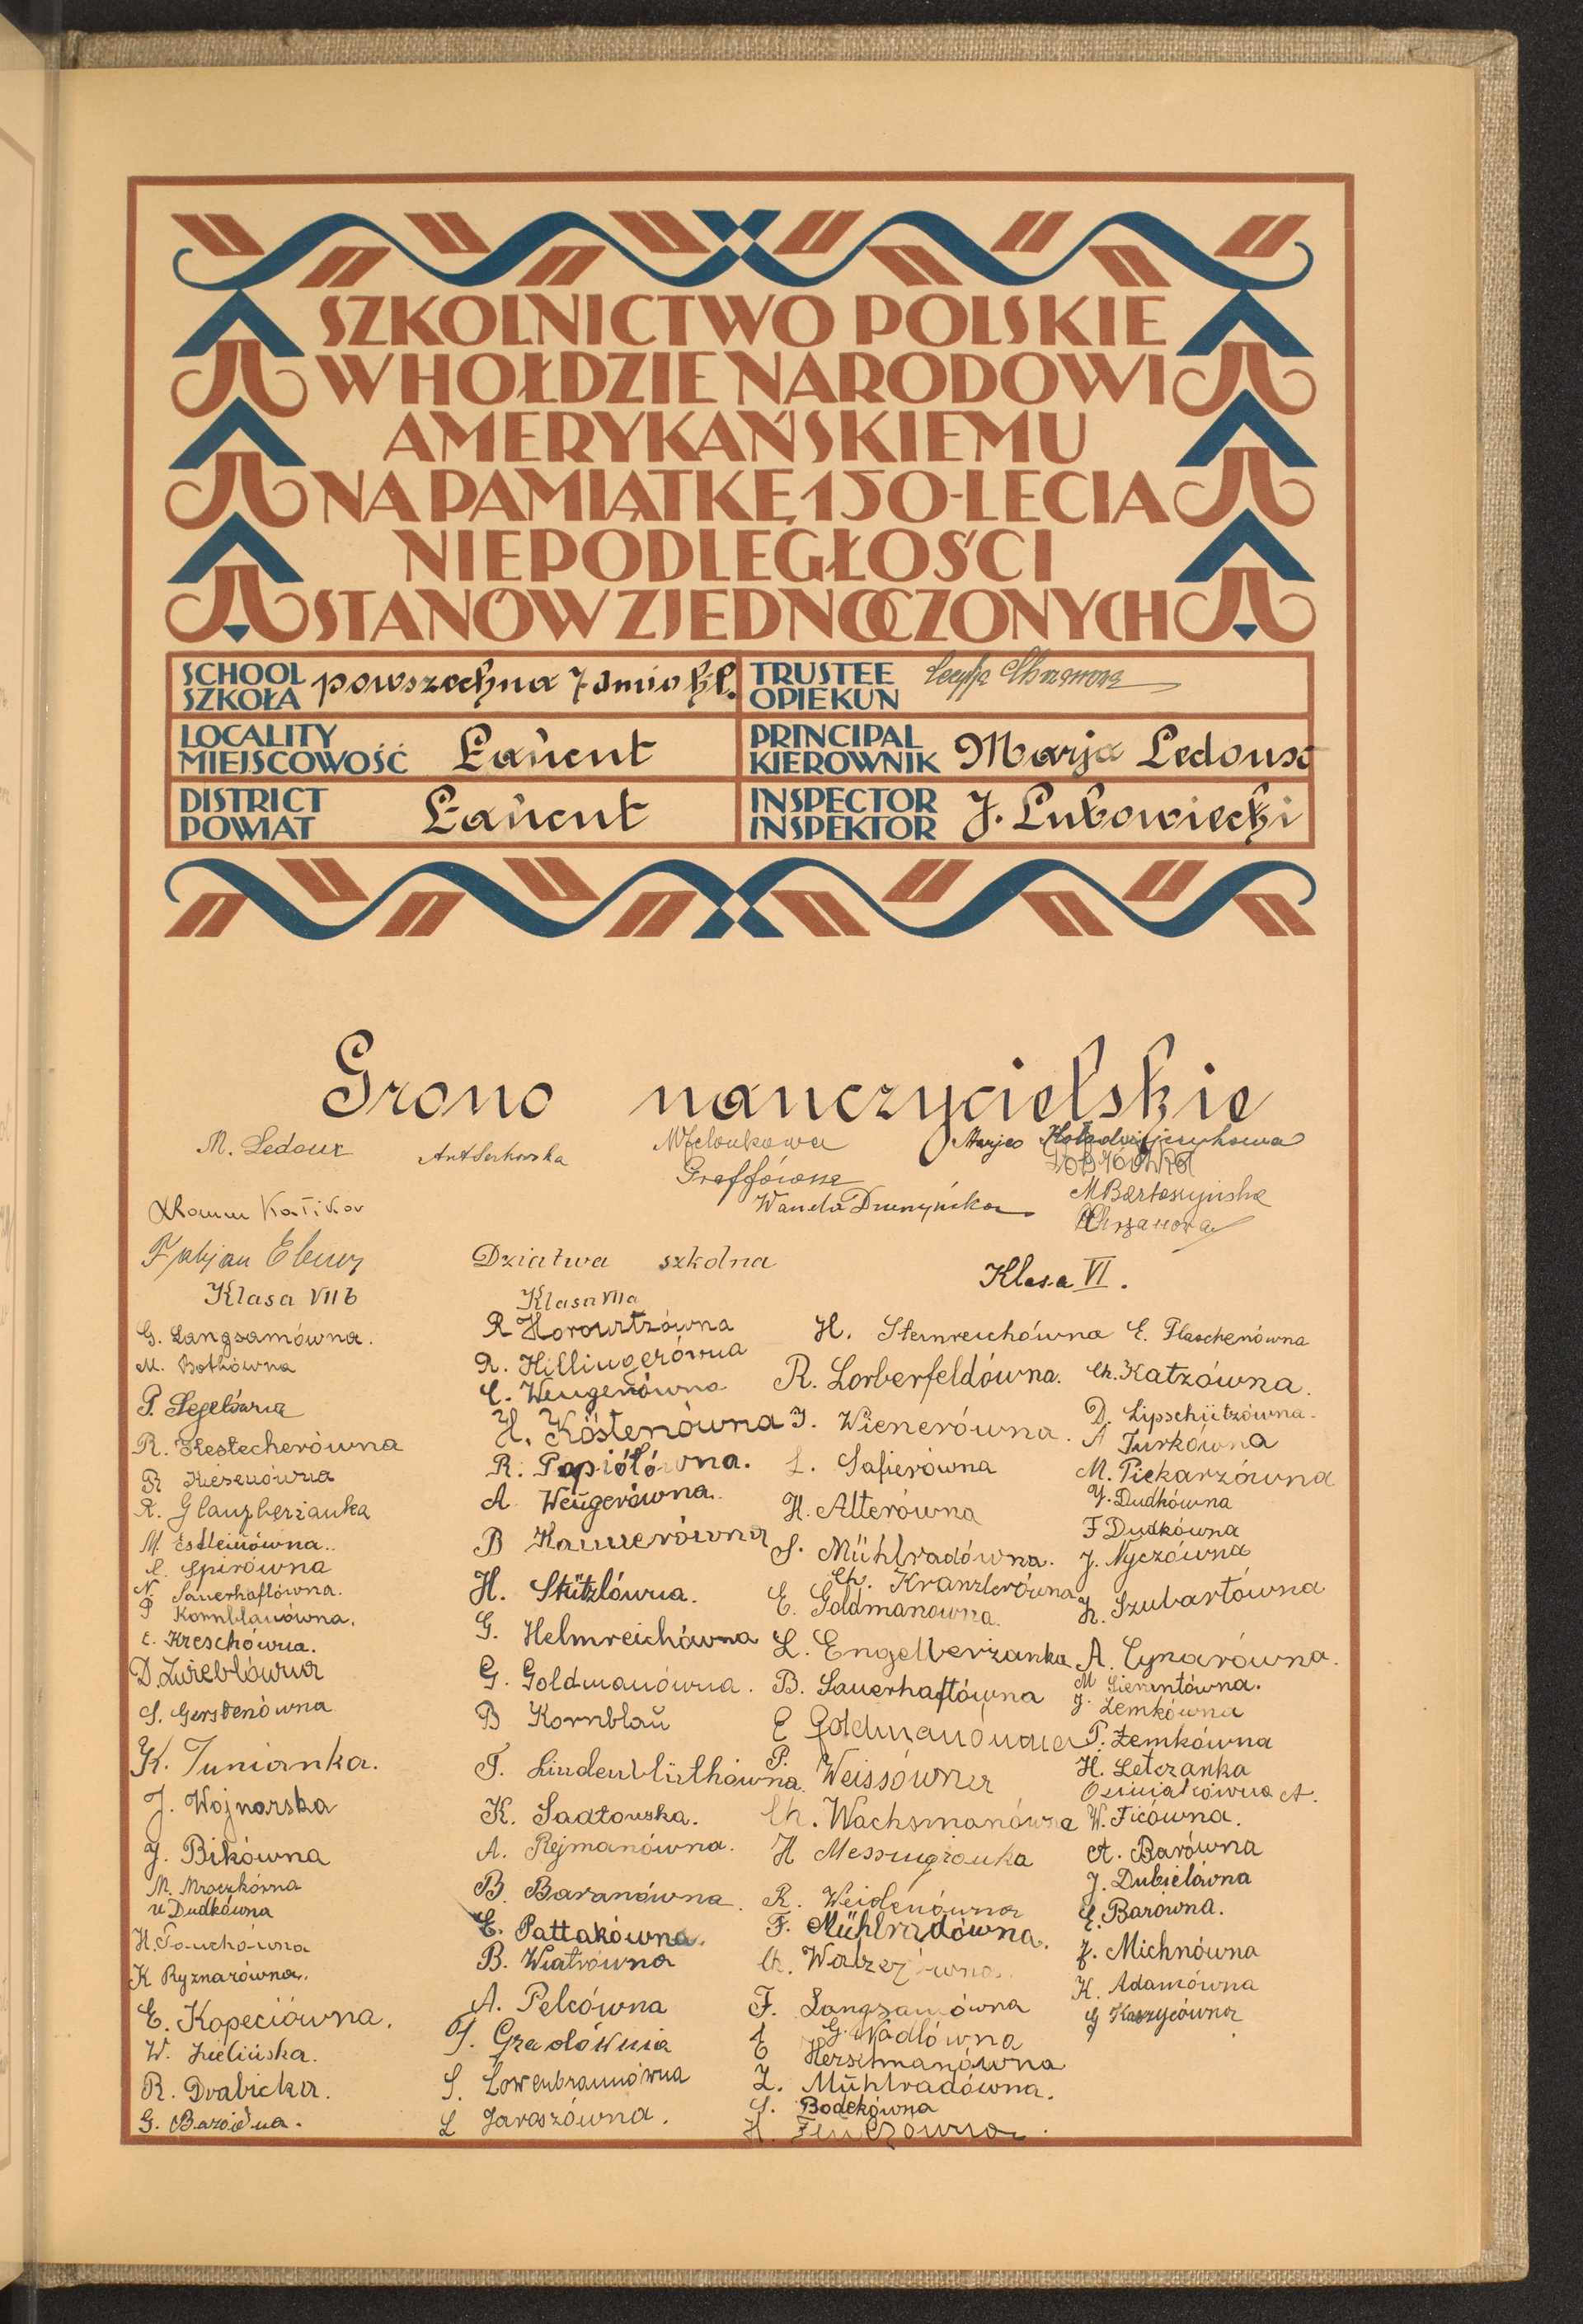 SZKOLNICTWO POLSKIE
W HOŁDZIE NARODOWI
AMERYKAŃSKIEMU
NA PAMIĄTKĘ 150-LECIA
NIEPODLEGŁOŚCI
STANÓW ZJEDNOCZONYCH
SCHOOL
SZKOŁA
powszechna 7-dmio kl.
TRUSTEE
OPIEKUN
LOCALITY
MIEJSCOWOŚĆ
Łańcut
PRINCIPAL
KIEROWNIK
Marja Ledoux
DISTRICT
POWIAT
Łańcut
INSPECTOR
INSPEKTOR
J. Lubowiecki
Grono nauczycielskie
M. Ledoux
Marja
Graffówna
M Bartoszyńska
Wanda
Chrzanowa
Fabjan
Dziatwa szkolna
Klasa VII b
G. Langsamówna.
M. Bothówna
R. Kestecherówna
R Kiesenówna
R. Glanzberżanka
M. Estleinówna..
S. Spirówna
N Sauerhaftówna.
P Kornblauówna.
E. Kreschówna.
D. Zwieblówna
S. Gerstenówna
K. Tunianka.
J. Wojnarska
J. Bikówna
M. Mroczkówna
Dudkówna
K Ryznarówna.
E. Kopeciówna.
W. Zielińska.
R. Drabicka.
G.
Klasa VIIa
R Horowitzówna
R. Hillingerówna
H. Köstenówna
R. Papiółówna.
A Weugerówna.
B
H. Stützlówna.
G. Helmreichówna
G. Goldmanówna.
B Kornblau
T. Lindenblüthówna.
K. Sadtowska.
A. Rejmanówna.
B. Baranówna.
E. Pattakówna.
B. Wiatrówna
A. Pelcówna
S. Löwenbraunówna
L Jaroszówna.
Klasa VI.
H. Sternreichówna
R. Lorberfeldówna.
J. Wienerówna.
L. Safierówna
H. Alterówna
S. Mühlradówna.
Ch. Kranzlerówna
E. Goldmanówna.
L. Engelberżanka
B. Sauerhaftówna
E Goldmanówna
P. Weissówna
Ch. Wachsmanówna
H
R. Weidenówna
F. Mühlradówna.
Ch.
F. Langsamówna
G. Nadlówna
E Herschmanówna
Z. Mühlradówna.
S. Bodekówna
H.
E. Flaschenówna
Ch. Katzówna.
D. Lipschützówna.
A Turkówna
M. Piekarzówna
J. Dudkówna
F Dudkówna
J. Nyczówna
K. Szubartówna
A. Cynarówna.
M Sierantówna.
J. Zemkówna
T. Zemkówna
H. Letczanka
Osiniakówna A.
W. Ficówna.
A. Barówna
J. Dubielówna
E. Barówna.
J. Michnówna
K. Adamówna
G Kaszycówna